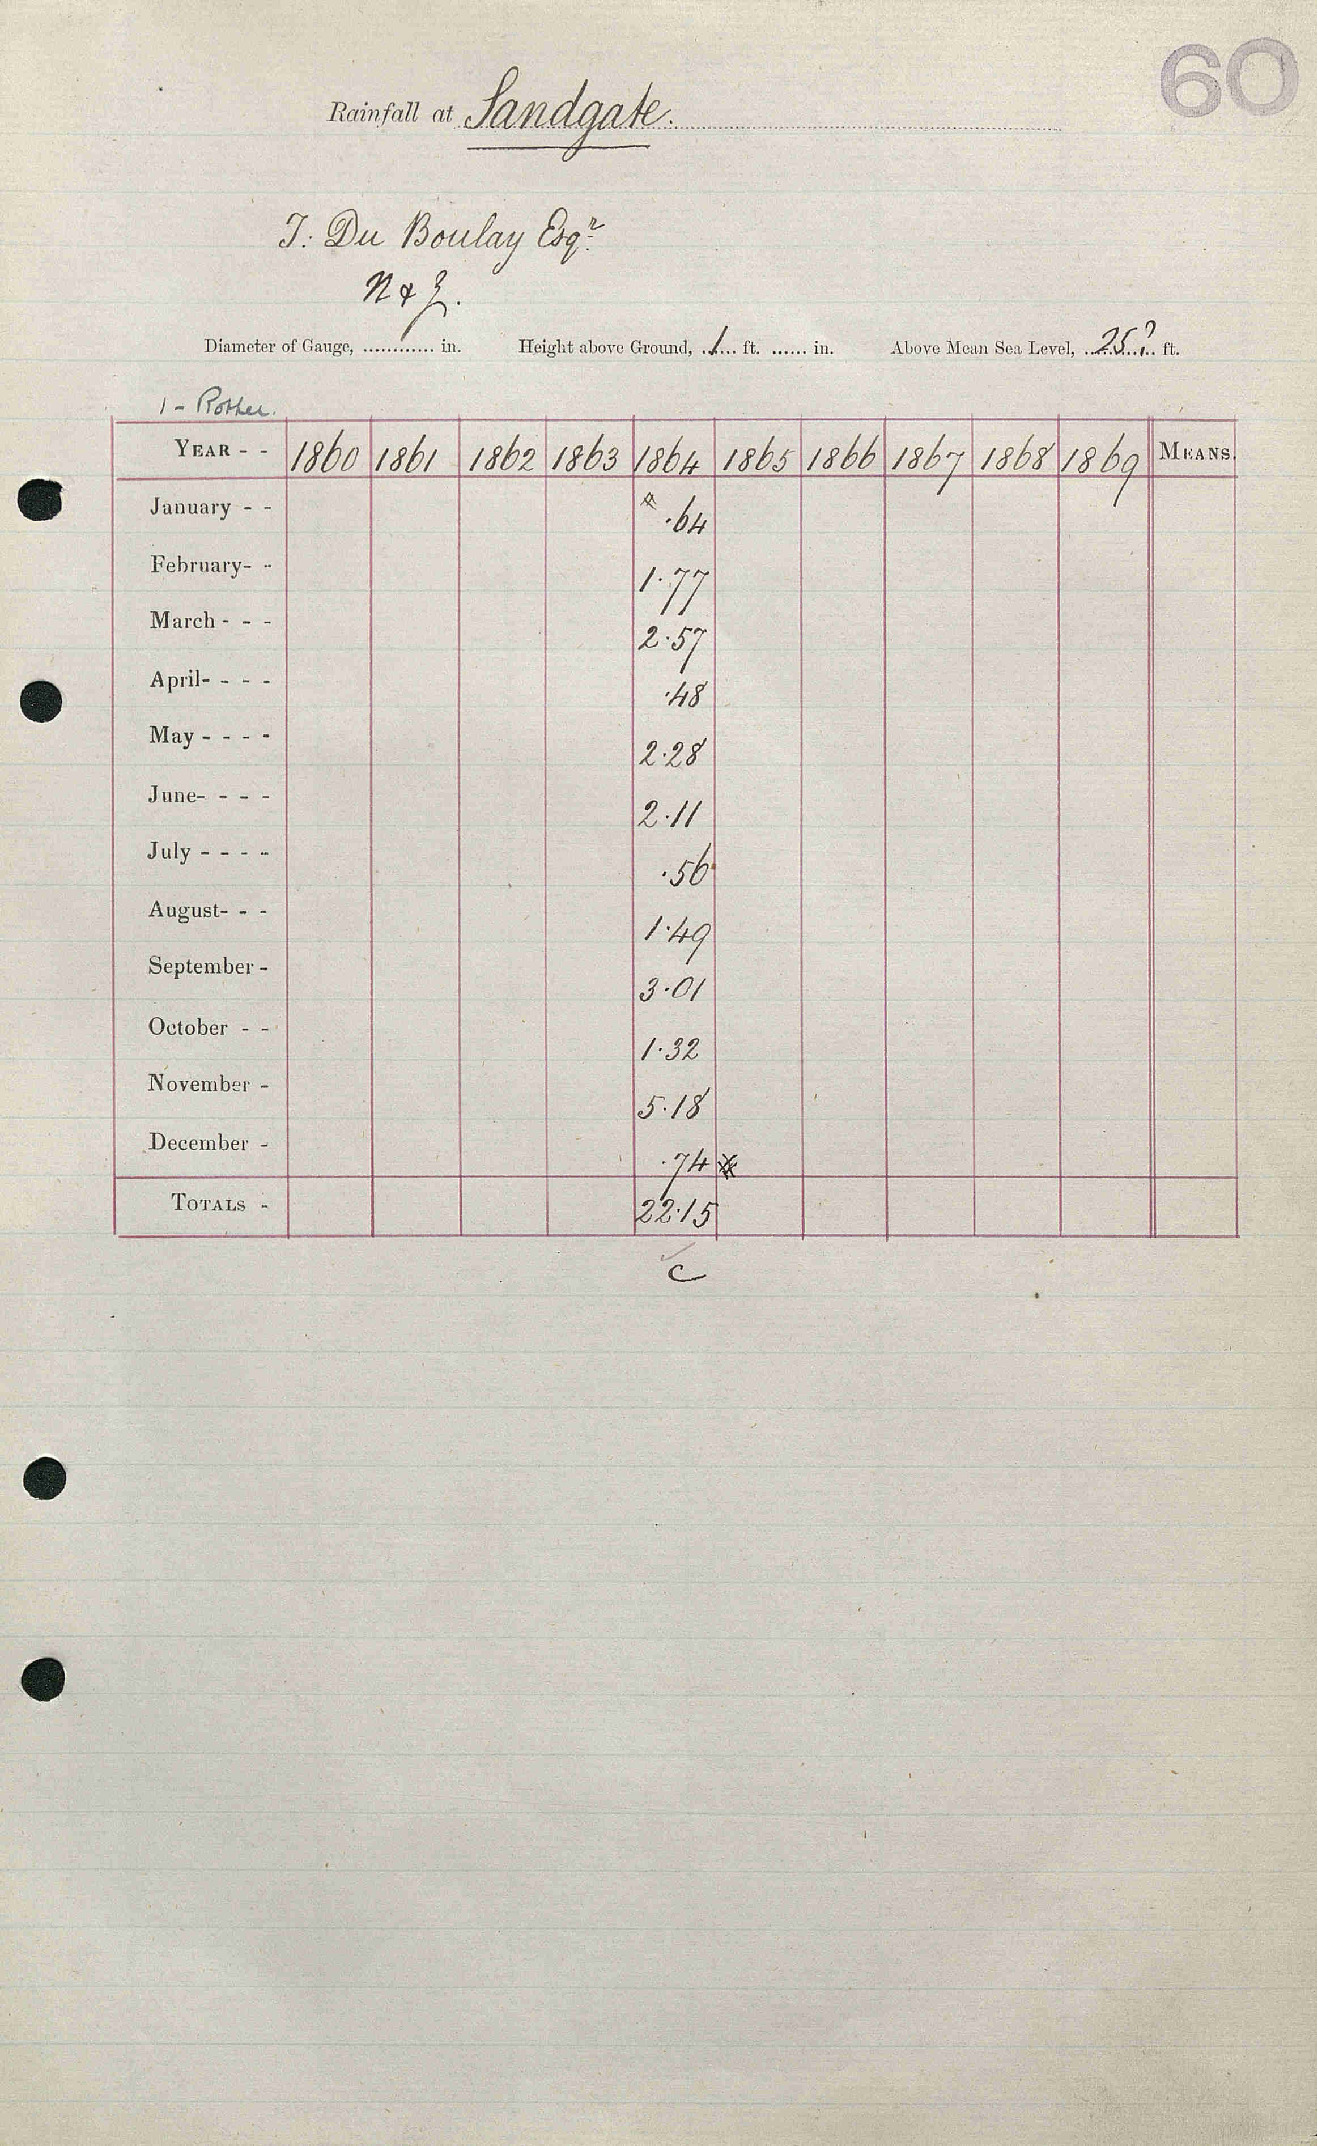 60
Rainfall at Sandgate.
T. Du Boulay Esqr.
N & Z.
Diameter of Gauge, ............ in. Height above Ground, 1 ft. ...... in. Above Mean Sea Level, 25? ft.
1 - Rother.
YEAR - - 1860 1861 1862 1863 1864 1865 1866 1867 1868 1869 MEANS.
January - - .64
February- - 1.77
March - - - 2.57
April- - - - .48
May - - - - 2.28
June- - - - 2.11
July - - - - .56
August- - - 1.49
September - 3.01
October - - 1.32
November - 5.18
December - .74 *
TOTALS - 22.15
C